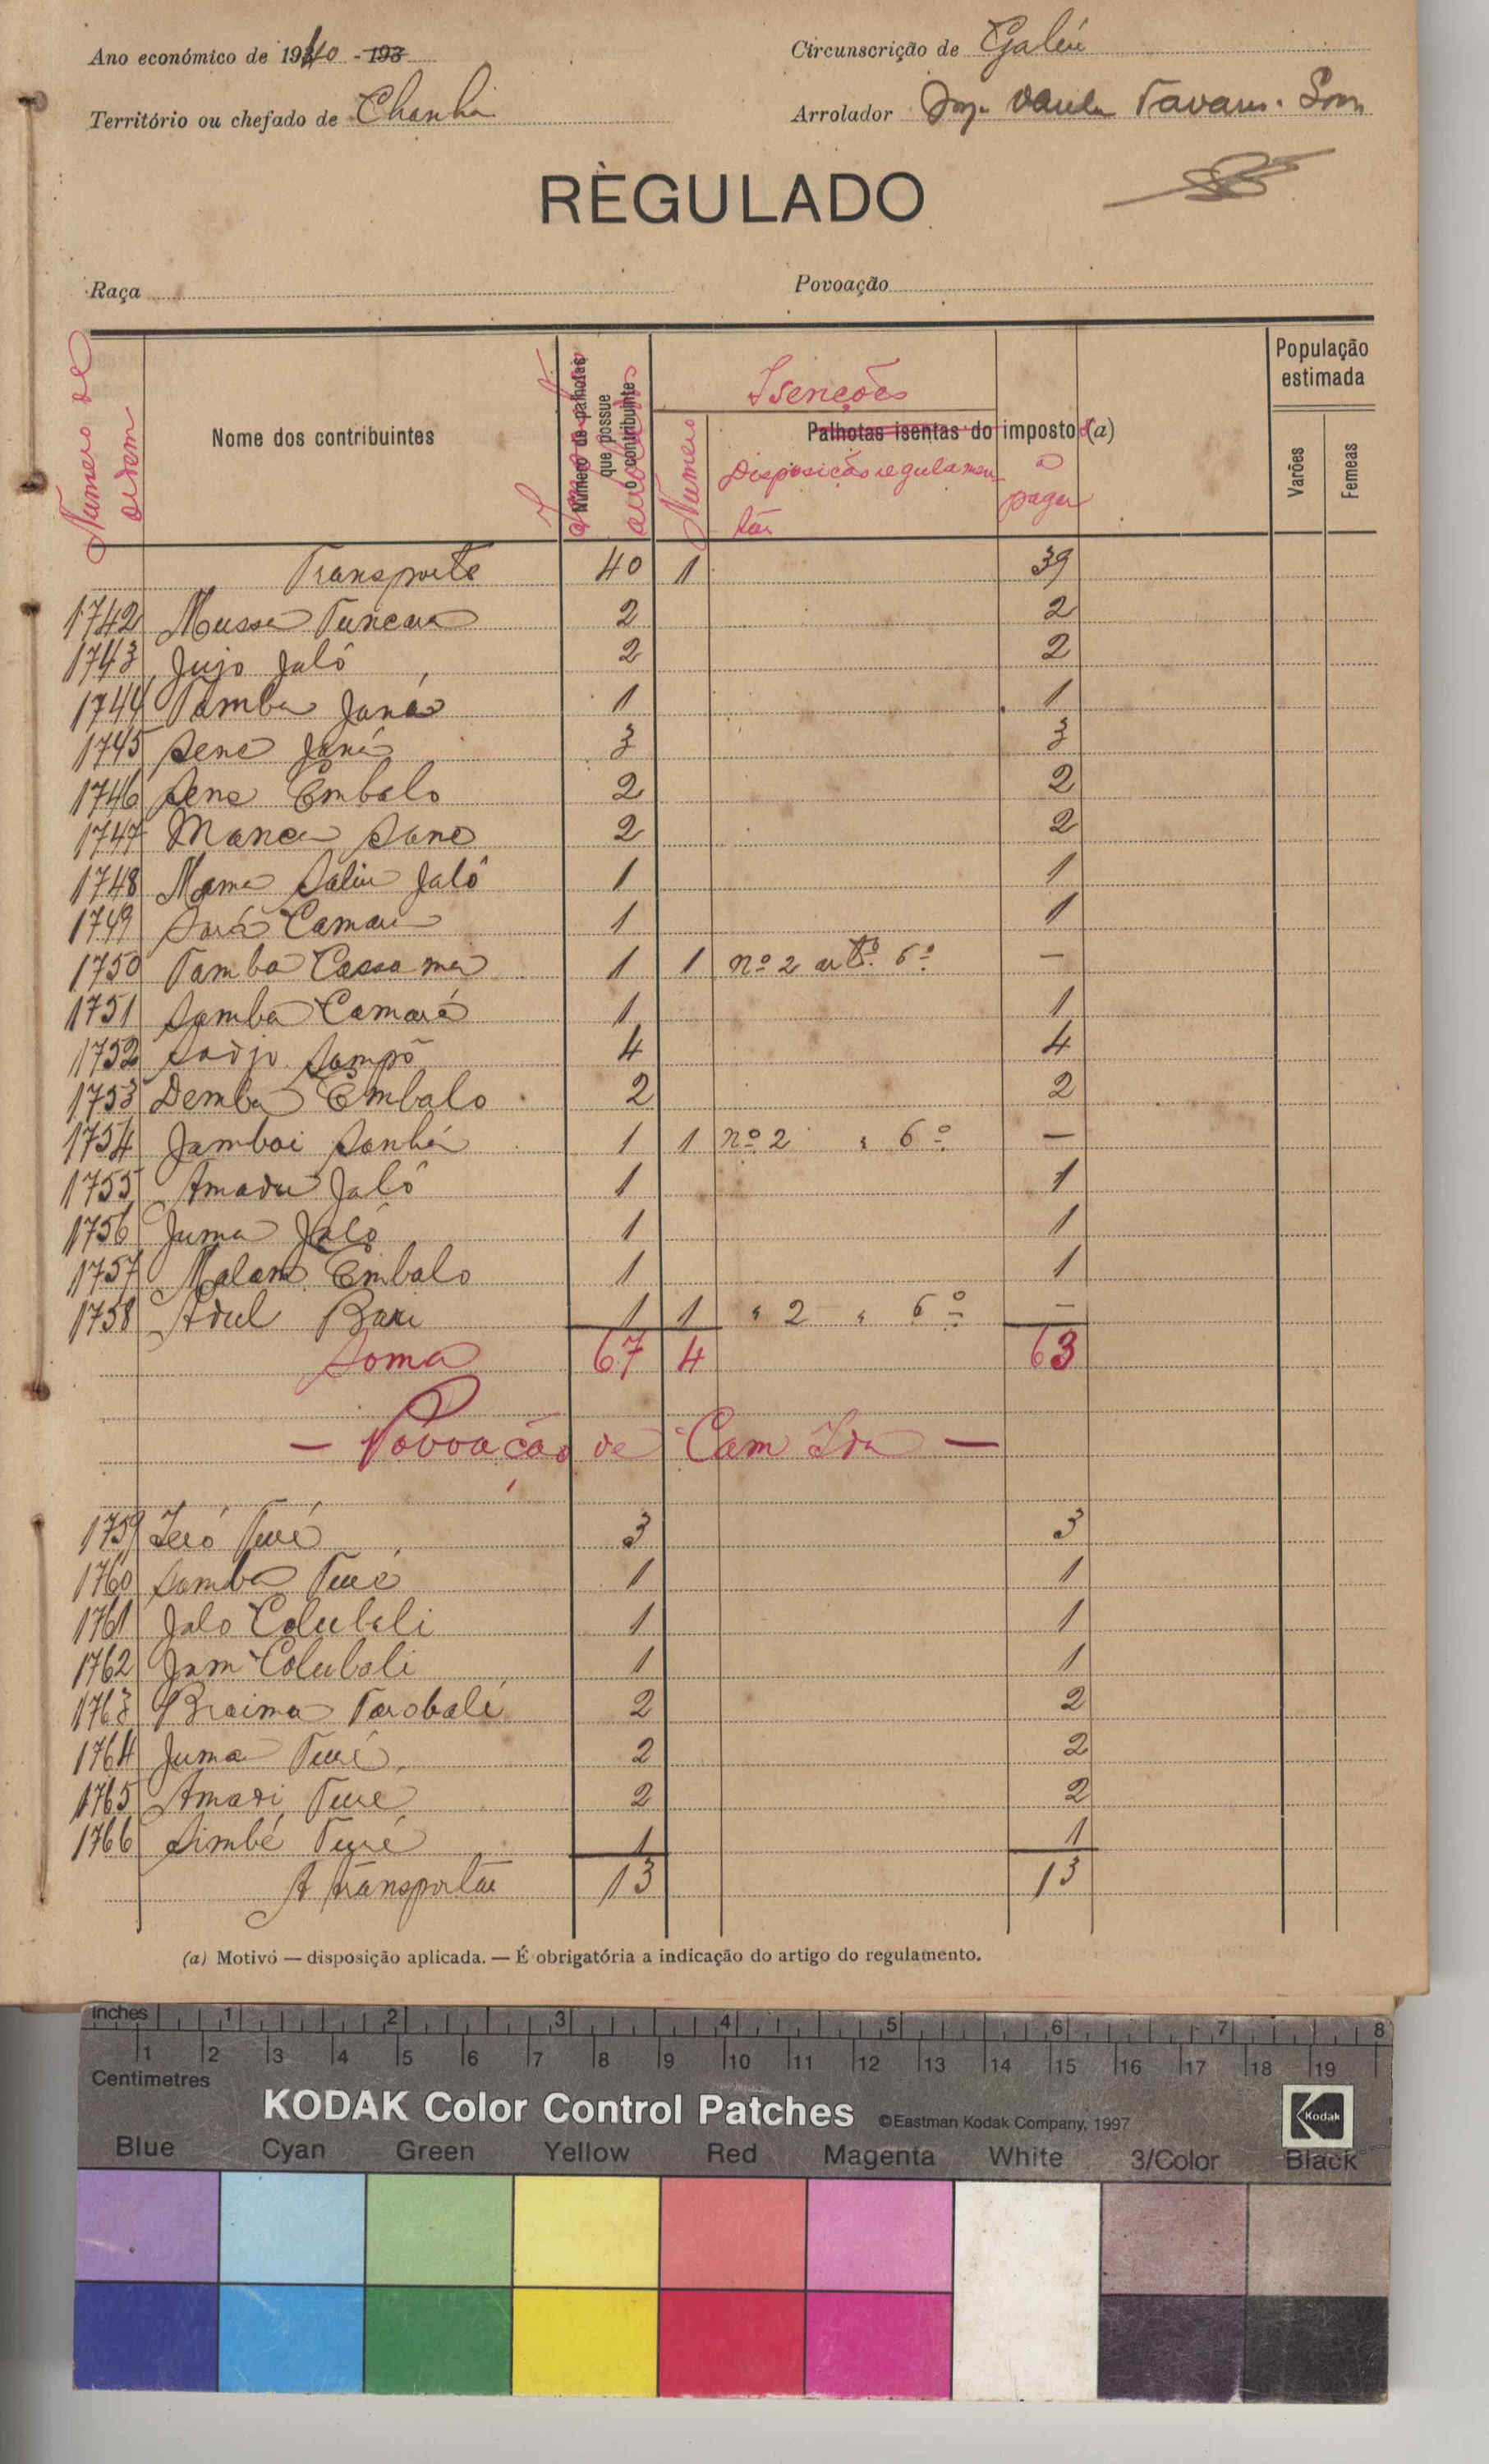 Ano económico de 1940 - 193
Circunscrição de Gabú
Território ou chefado de Chanha
Arrolador Tavares
REGULADO
Raça
Povoação
Numero de ordem
Nome dos contribuintes
Número de palhotas que possue o contribuinte
Impostos arrolados
Isenções
Palhotas isentas do imposto (a)
Numero
Disposição regulamentar
a pagar
População estimada
Varões
Femeas
Transporte 40 1 39
1742 Mussa Tuncara 2 2
1743 Jujo Jaló 2 2
1744 Tamba Jana 1 1
1745 Sene Jané 3 3
1746 Sene Embalo 2 2
1747 Manca Sane 2 2
1748 Mama Saliu Jaló 1 1
1749 Sará Camara 1 1
1750 Tamba Cassama 1 1 nº 2 artº 6º —
1751 Samba Camará 1 1
1752 Sadjo Sampó 4 4
1753 Demba Embalo 2 2
1754 Jamboi Sanhá 1 1 nº 2 " 6º —
1755 Amadu Jaló 1 1
1756 Juma Jaló 1 1
1757 Malam Embalo 1 1
1758 Adul Bari 1 1 " 2 " 6º —
Soma 67 4 63
— Povoação de Cam Ida —
1759 Iéró Turé 3 3
1760 Samba Turé 1 1
1761 Jalo Colubali 1 1
1762 Jam Colubali 1 1
1763 Braima Tarobalé 2 2
1764 Juma Turé 2 2
1765 Amadi Ture 2 2
1766 Simbé Turé 1 1
A transportar 13 13
(a) Motivo — disposição aplicada. — É obrigatória a indicação do artigo do regulamento.
inches 1 2 3 4 5 6 7 8
1 2 3 4 5 6 7 8 9 10 11 12 13 14 15 16 17 18 19
Centimetres
KODAK Color Control Patches ©Eastman Kodak Company, 1997 Kodak
Blue Cyan Green Yellow Red Magenta White 3/Color Black